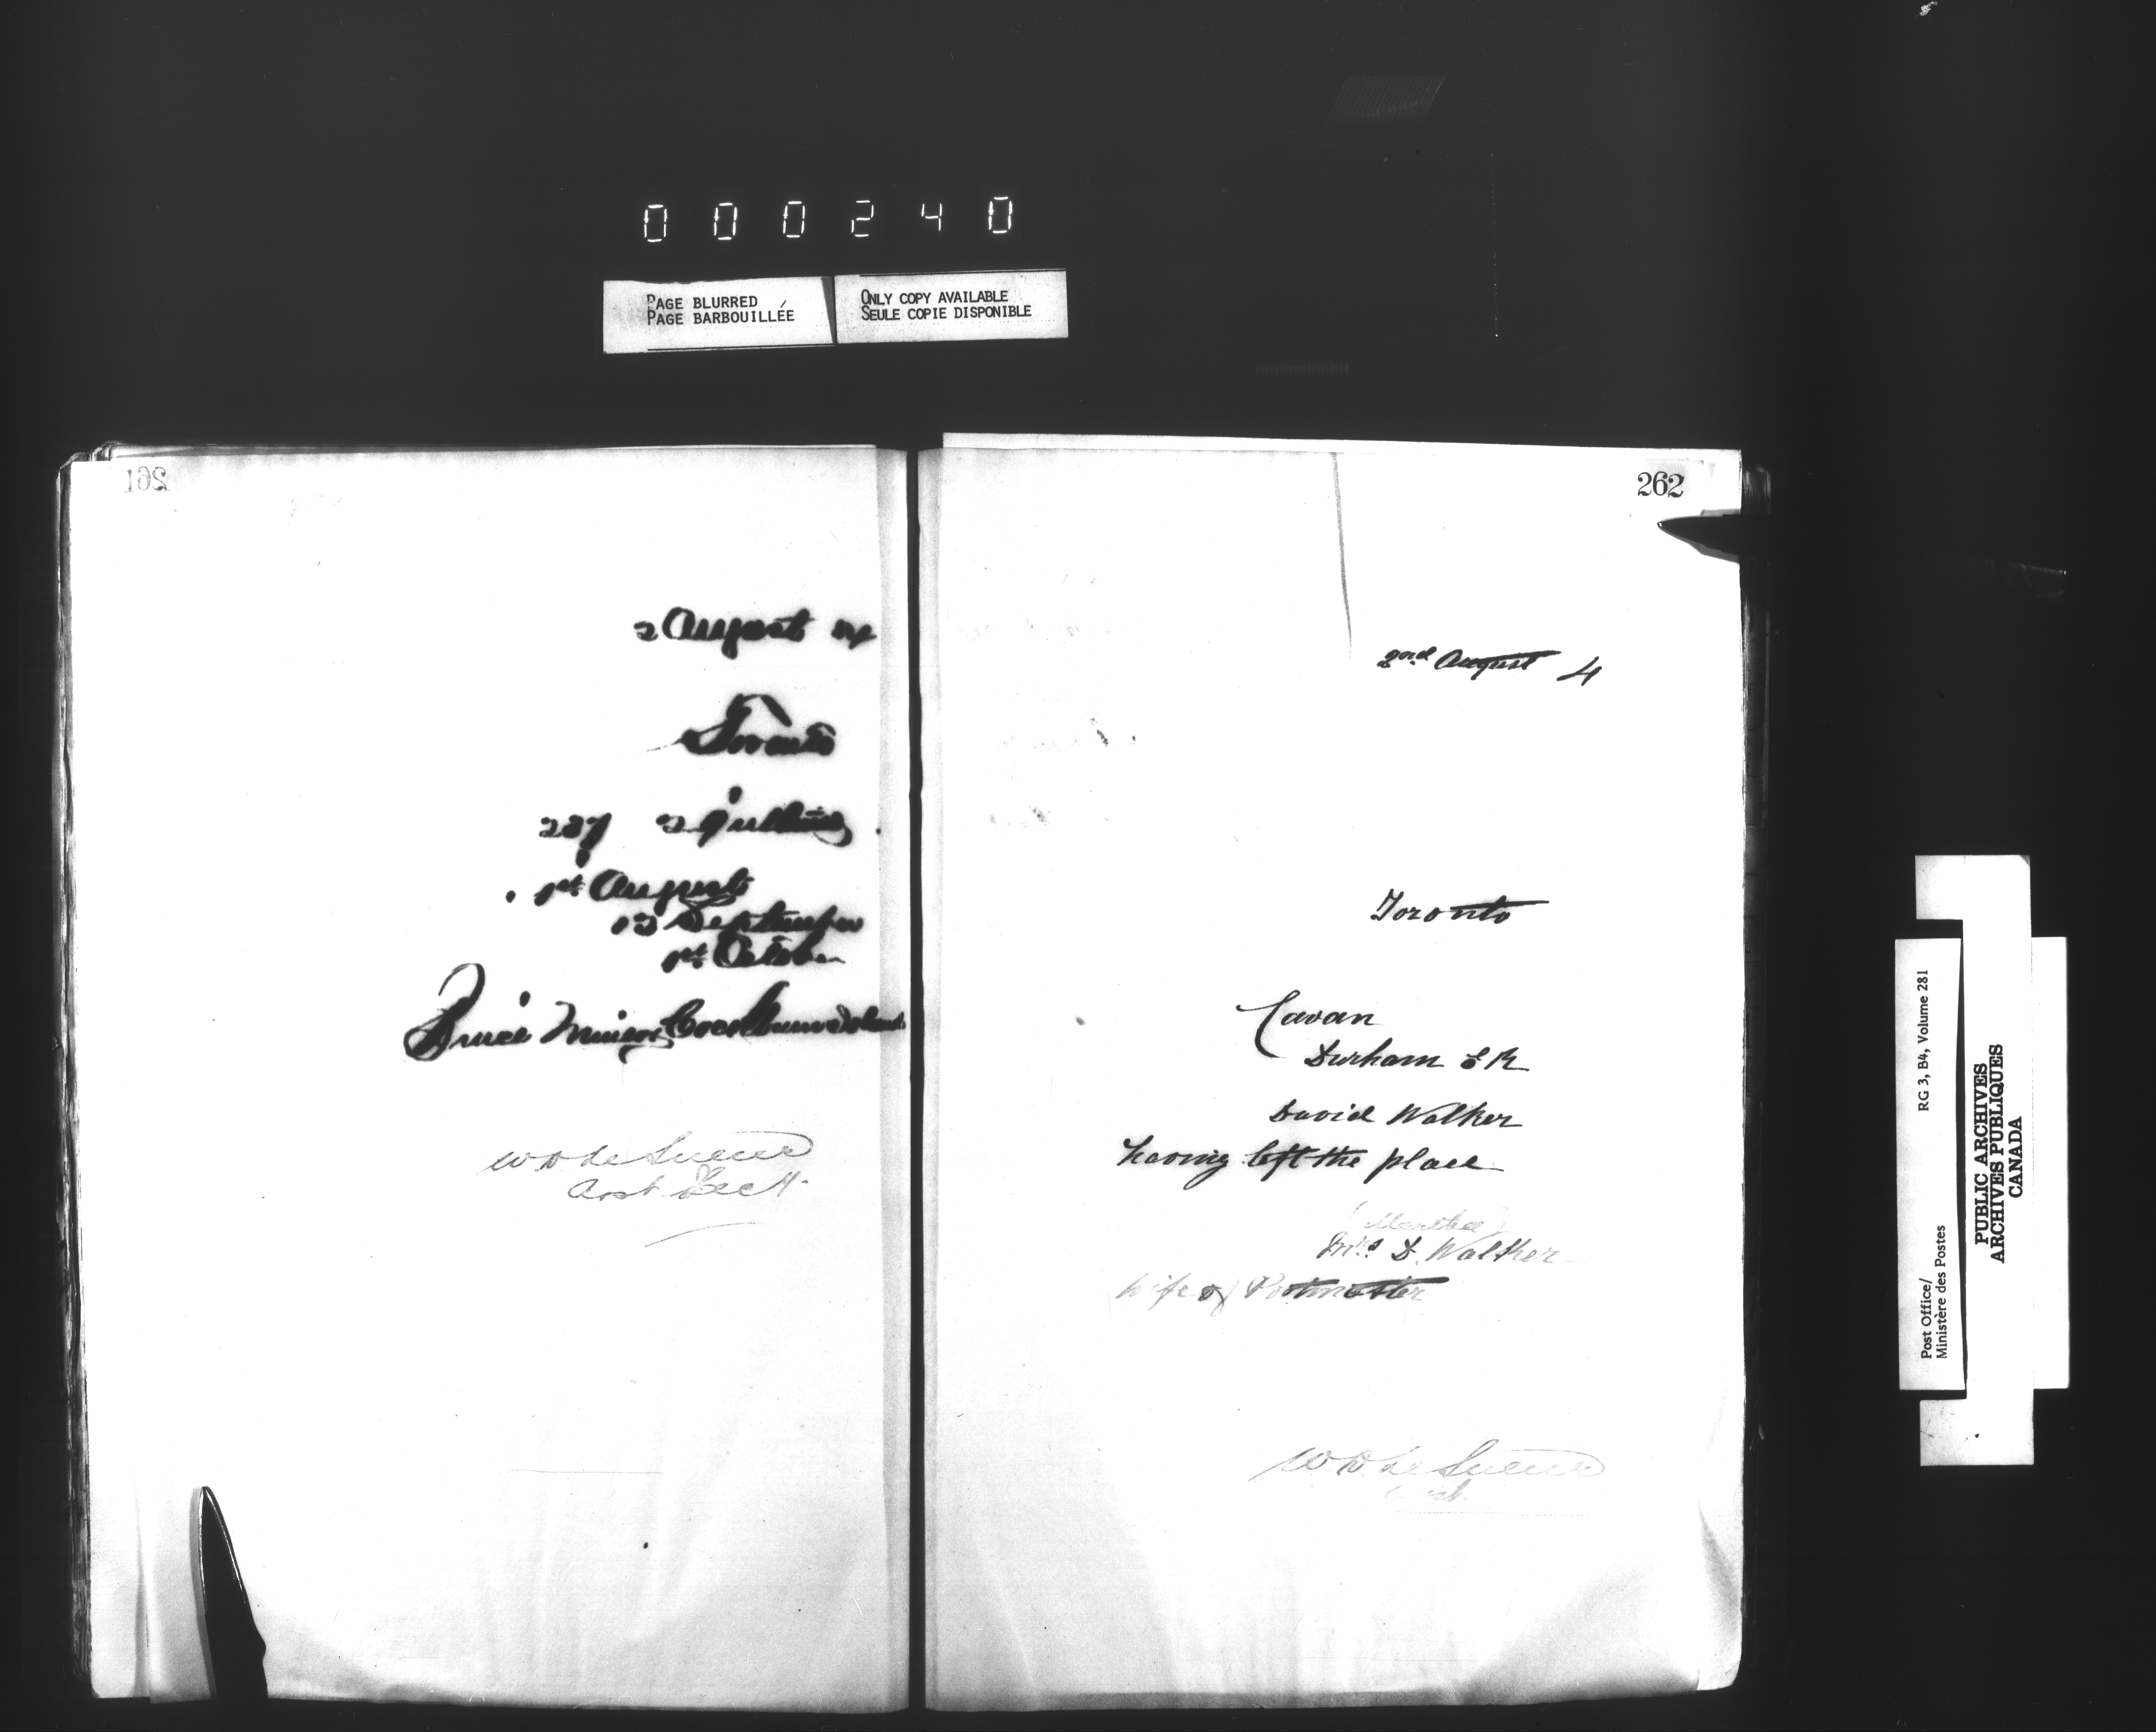 000240
PAGE BLURRED
PAGE BARBOUILLÉE
ONLY COPY AVAILABLE
SEULE COPIE DISPONIBLE
261
2 August 84
Toronto
237 2 Ultimo
1st August
13 September
1st October
Bruce Mines Cockburn Island
W D Le Sueur
Asst Secy
262
2nd August 4
Toronto
Cavan
Durham E R
David Walker
having left the place
(Martha)
Mrs D. Walker
wife of Postmaster
W D Le Sueur
RG 3, B4, Volume 281
Post Office/
Ministère des Postes
PUBLIC ARCHIVES
ARCHIVES PUBLIQUES
CANADA